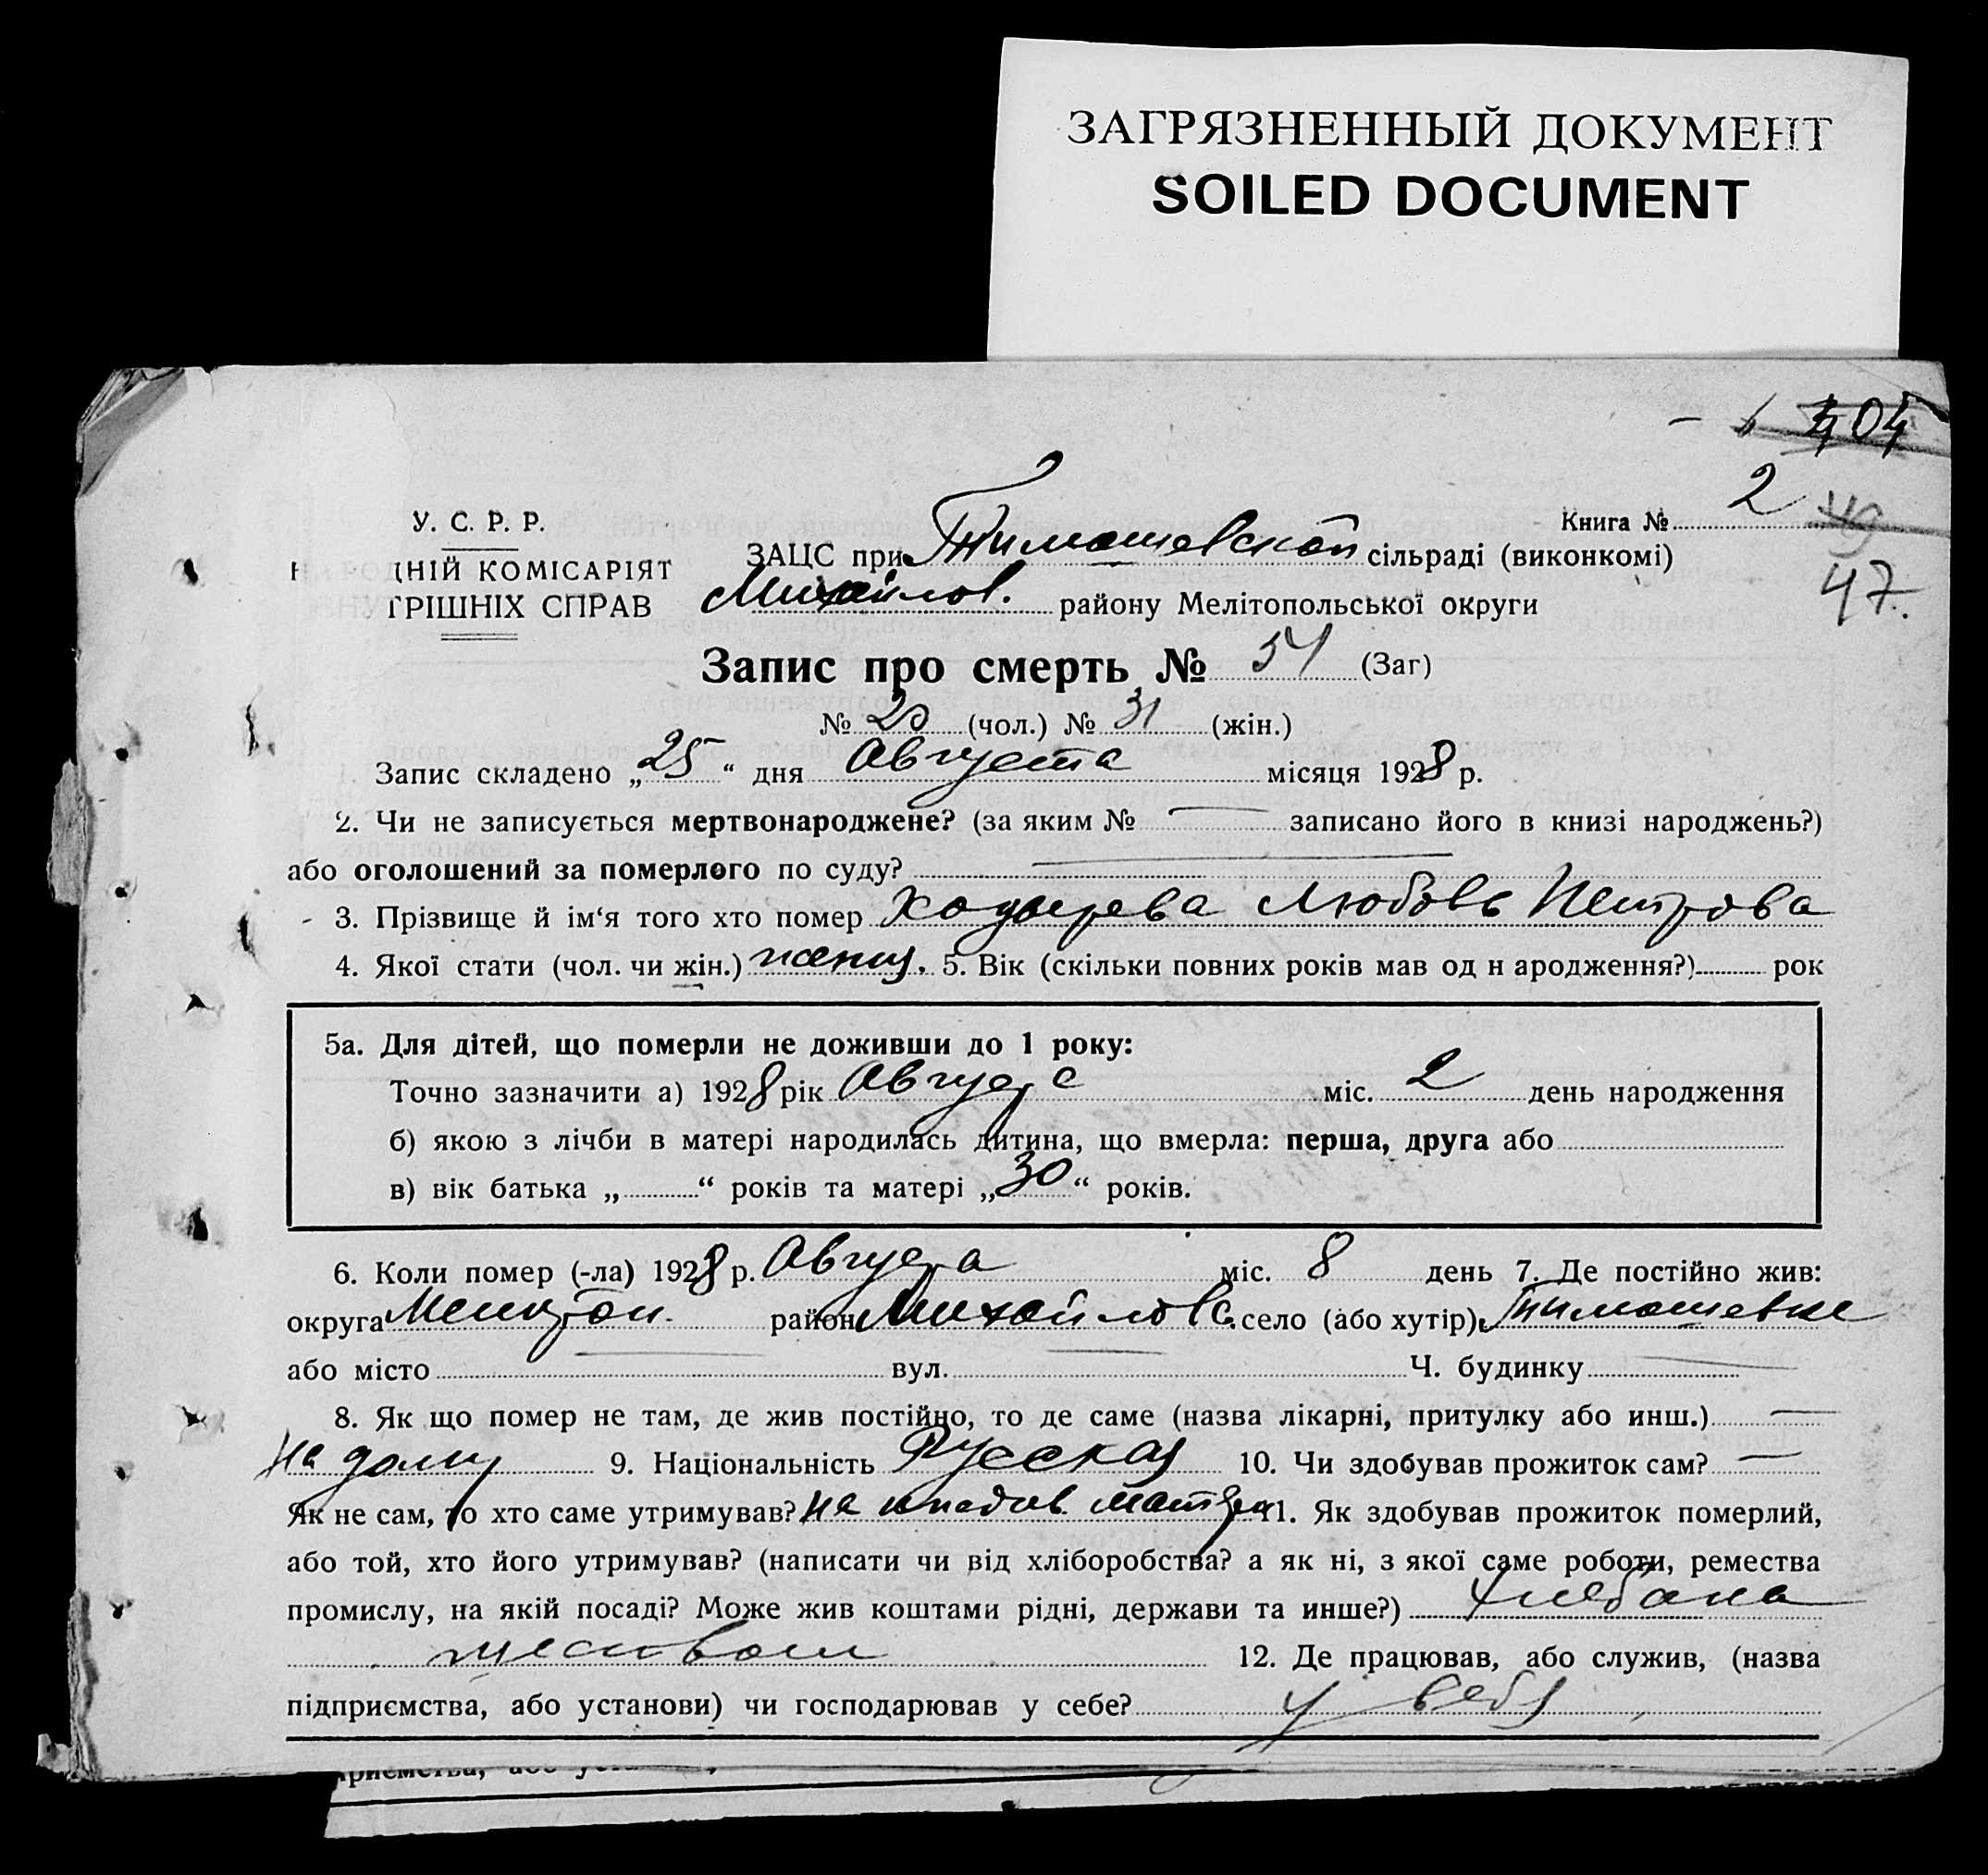 ЗАГРЯЗНЕННЫЙ ДОКУМЕНТ
SOILED DOCUMENT
404
У. С. Р. Р.
Книга № 2 49
ДНІЙ КОМІСАРІЯТ
ЗАЦС при Тимашевской сільраді (виконкомі)
47.
ТРІШНІХ СПРАВ
Михайлов. району Мелітопольської округи
Запис про смерть № 51 (Заг)
№ 20 (чол.) № 31 (жін.)
1. Запис складено „25“ дня Августа місяця 1928 р.
2. Чи не записується мертвонароджене? (за яким № — записано його в книзі народжень?)
або оголошений за померлого по суду?
3. Прізвище й ім‘я того хто помер Любовь Петрова
4. Якої стати (чол. чи жін.) женщ. 5. Вік (скільки повних років мав од н ародження?) рок
5а. Для дітей, що померли не доживши до 1 року:
Точно зазначити а) 1928 рік Августа міс. 2 день народження
б) якою з лічби в матері народилась дитина, що вмерла: перша, друга або
в) вік батька „ “ років та матері „30“ років.
6. Коли помер (-ла) 1928 р. Августа міс. 8 день 7. Де постійно жив:
округа Мелитоп. район Михайловс. село (або хутір) Тимашевке
або місто вул. Ч. будинку
8. Як що помер не там, де жив постійно, то де саме (назва лікарні, притулку або инш.) —
На дому 9. Національність Русская 10. Чи здобував прожиток сам? —
Як не сам, то хто саме утримував? На иждов. матери 11. Як здобував прожиток померлий,
або той, хто його утримував? (написати чи від хліборобства? а як ні, з якої саме роботи, ремества
промислу, на якій посаді? Може жив коштами рідні, держави та инше?) Хлебопа
шеством 12. Де працював, або служив, (назва
підприємства, або установи) чи господарював у себе? У себя